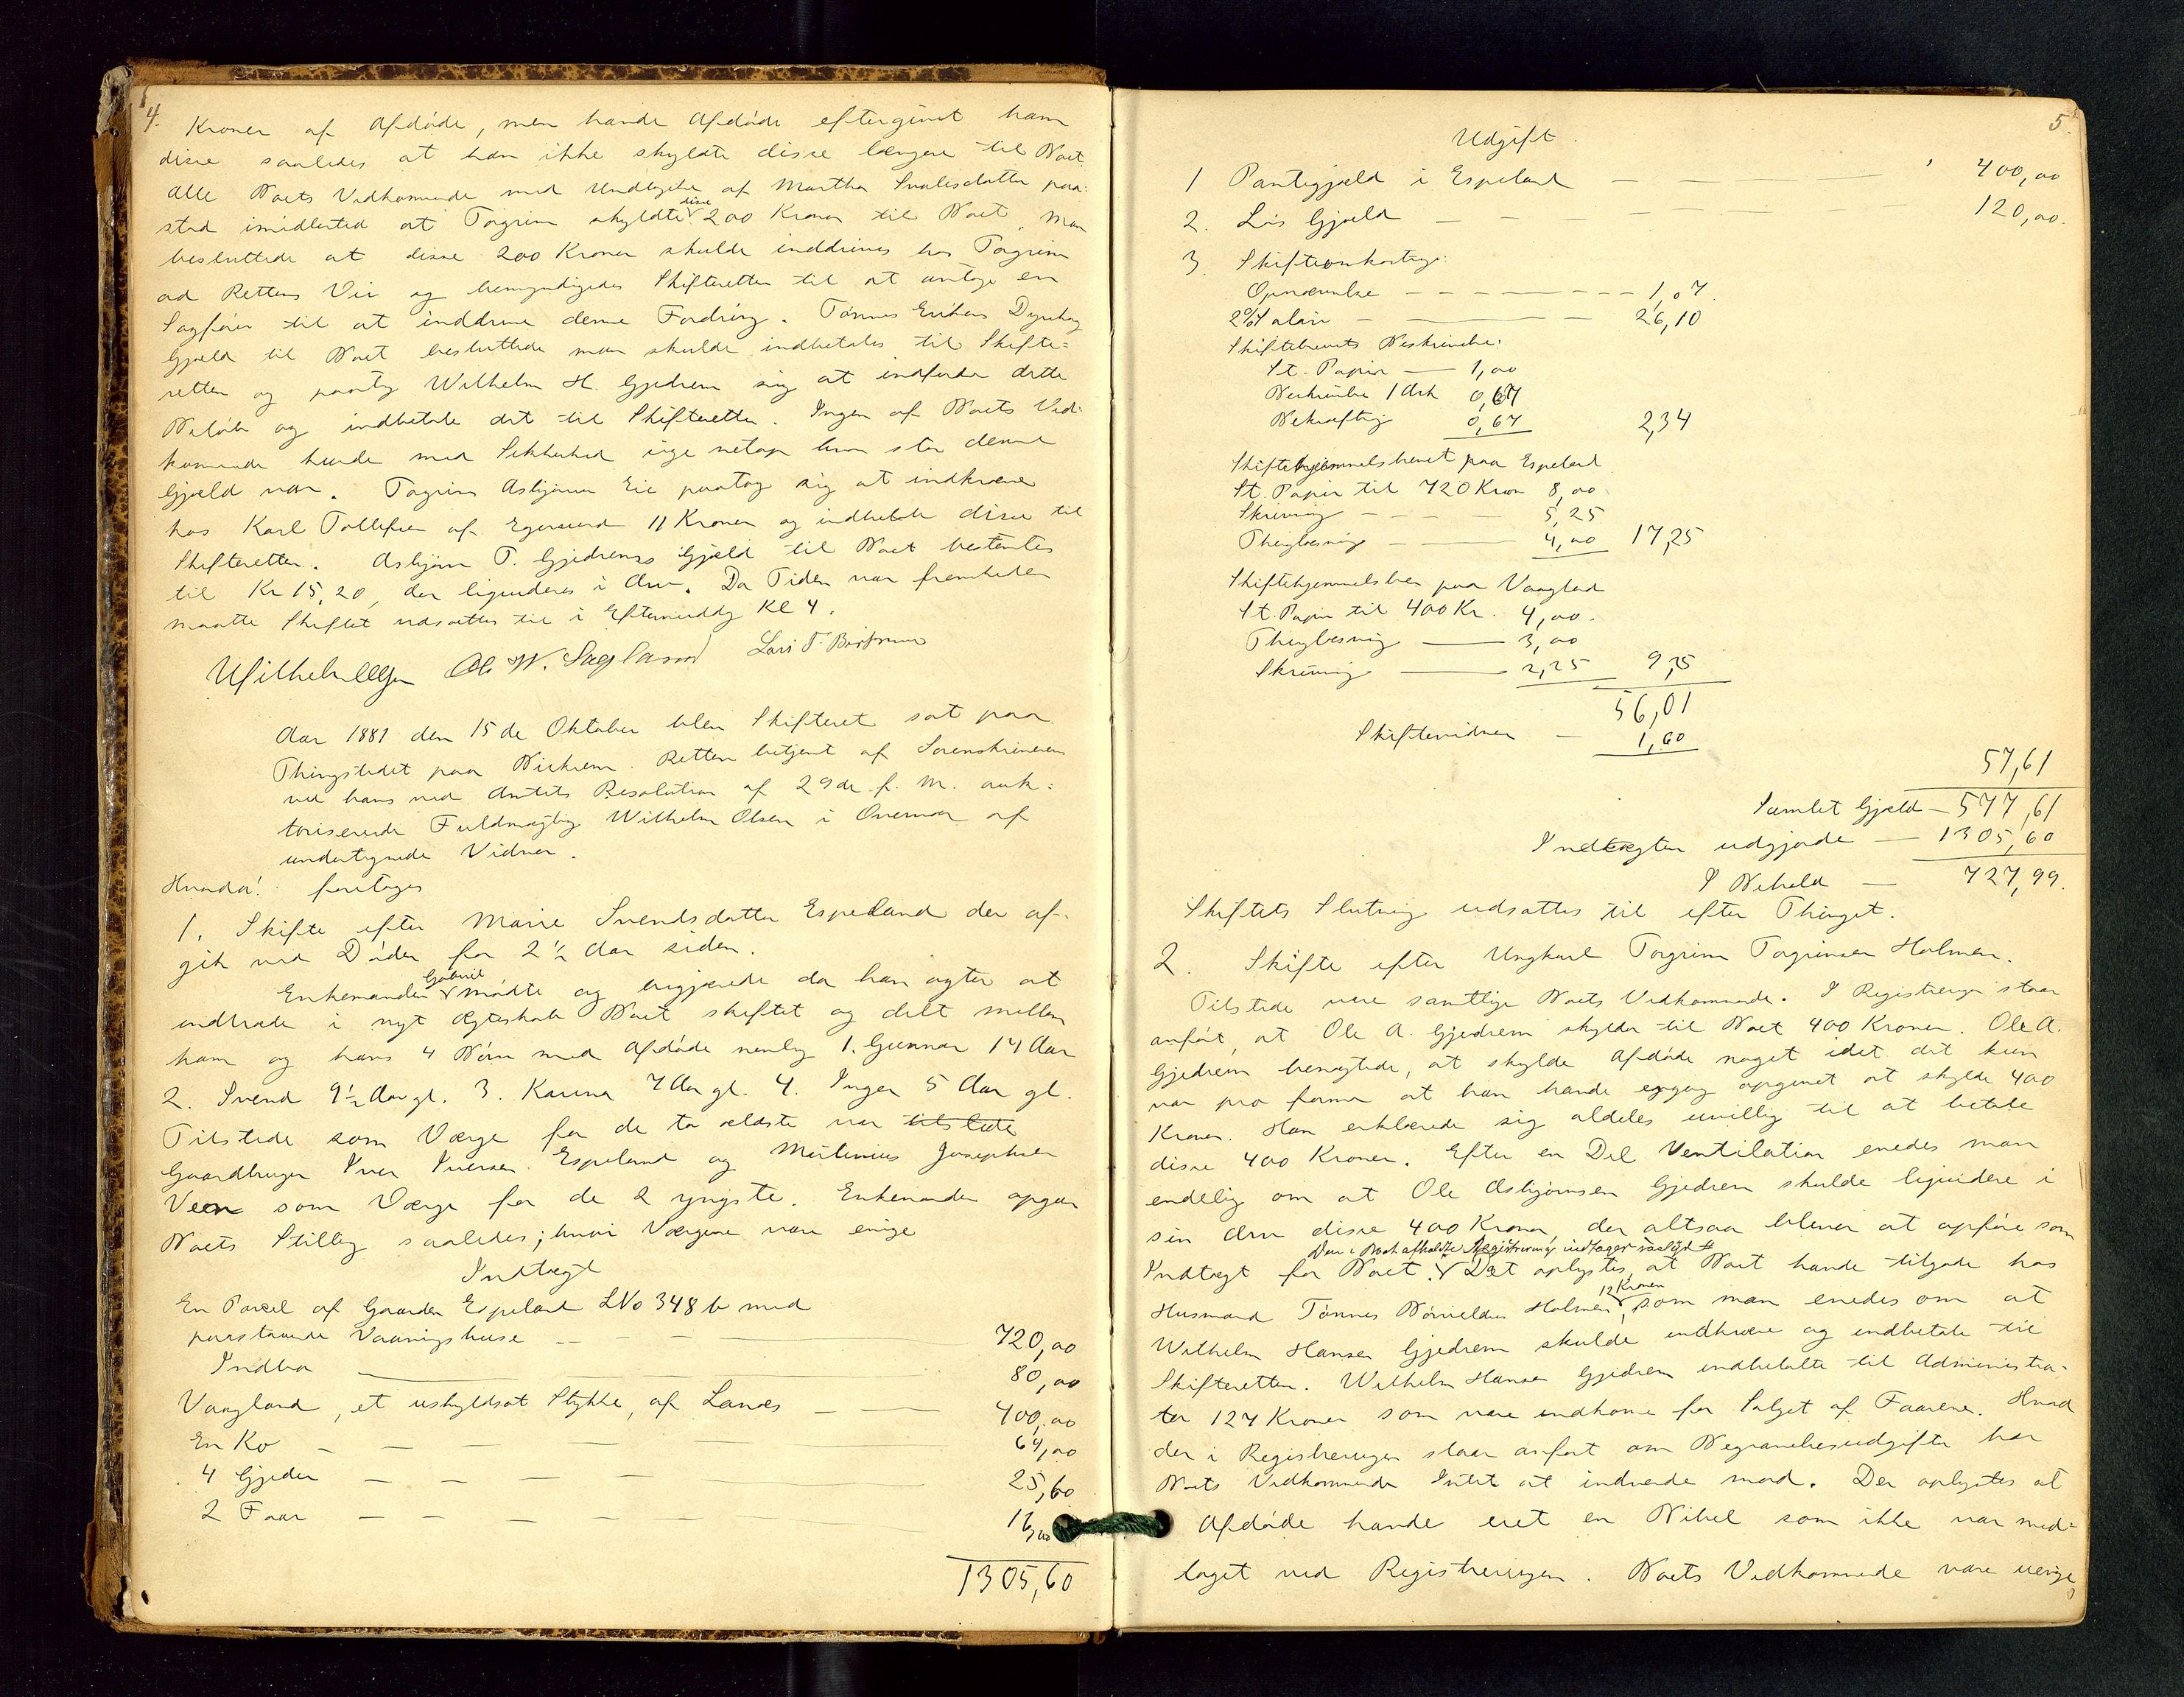 4.
Kroner af Afdøde, men havde Afdøde eftergivet ham
disse saaledes at han ikke skyldte disse længere til Boet.
Alle Boets Vedkommende med Undtagelse af Martha Svalesdatter paa-
stod imidlertid at Torgrim skyldte disse 200 Kroner til Boet. Man
besluttede at disse 200 Kroner skulde inddrives hos Torgrim
ad Rettens Vei og bemyndigedes Skifteretten til at antage en
Sagfører til at inddrive denne Fordring. Tønnes Eriksen
Gjæld til Boet besluttede man skulde indbetales til Skifte-
retten og paatog Wilhelm H. Gjedrem sig at indfordre dette
Beløb og indbetale det til Skifteretten. Ingen af Boets Ved-
kommende kunde med Sikkerhed sige netop hvor stor denne
Gjæld var. Torgrim Asbjørnsen Eie paatog sig at indkræve
hos Karl Tollefsen af Egersund 11 Kroner og indbetale disse til
Skifteretten. Asbjørn T. Gjedrems Gjæld til Boet bestemtes
til Kr 15,20, der ligvideres i Arv. Da Tiden var fremskreden
maatte Skiftet udsættes til i Eftermiddag Kl 4.
Wilhelm Olsen Ole W. Sægland Lars T. Birkrem
Aar 1881 den 15 de Oktober blev Skifteret sat paa
Thingstedet paa Birkrem. Retten betjent af Sorenskriveren
ved hans ved Amtets Resolution af 29de f. M. auk-
toriserede Fuldmægtig Wilhelm Olsen i Overvær af
undertegnede Vidner.
Hvorda! foretoges
1. Skifte efter Marie Svendsdatter Espeland der af-
gik ved Døden for 2 1/2 Aar siden.
Enkemanden Gabriel mødte og begjærede da han agter at
indtræde i nyt Ægteskab Boet skiftet og delt mellem
ham og hans 4 Børn med Afdøde nemlig 1. Gunnar 14 Aar
2. Svend 9 1/2 Aar gl. 3. Karina 7 Aar gl. 4. Inger 5 Aar gl.
Tilstede som Værge for de to ældste var tilstede
Gaardbruger Iver Iversen Espeland og Mortinius Josephsen
Veen som Værge for de 2 yngste. Enkemanden opgav
Boets Stilling saaledes; hvori Værgerne vare enige
Indtægt
En Parcel af Gaarden Espeland LNo 348 b med
paastaaende Vaaningshuse — 720,00
Indbo — 80,00
Vaagland, et uskyldsat Stykke, af Lands — 400,00
En Ko — 64,00
4 Gjeder — 25,60
2 Faar — 16,00
1305,60
5.
Udgift.
1 Pantegjæld i Espeland — 400,00
2. Løs Gjæld — 120,00.
3. Skifteomkostnger:
Opnævnelse — 1,07.
2% Salær — 26,10
Skiftebrevets Beskrivelse:
St. Papir — 1,00
Beskrivelse 1 Ark 0,67
Bekræftig 0,67 2,34
Skiftehjemmelsbrevet paa Espeland
St. Papir til 720 Kron 8,00
Skrivning — 5,25
Thinglæsning — 4,00 17,25
Skiftehjemmelsbrev paa Vaagland
St. Papir til 400 Kr. 4,00.
Thinglæsning — 3,00
Skrivning — 2,25 9,25
56,01
Skiftevidner — 1,60
57,61
Samlet Gjæld — 577,61
Indtægten udgjorde — 1305,60
I Behold — 727,99.
Skiftets Slutning udsattes til efter Thinget.
2. Skifte efter Ungkarl Torgrim Torgrimsen Holmen.
Tilstede vare samtlige Boets Vedkommende. I Registreringen staar
anført, at Ole A. Gjedrem skylder til Boet 400 Kroner. Ole A.
Gjedrem benegtede, at skylde Afdøde noget idet det kun
var pro forma at han havde engang opgivet at skylde 400
Kroner. Han erklærede sig aldeles uvillig til at betale
disse 400 Kroner. Efter en Del Ventilation enedes man
endelig om at Ole Asbjørnsen Gjedrem skulde ligvidere i
sin Arv disse 400 Kroner, der altsaa bliver at opføre som
Den i Boet afholdte Registrering indtages saalydende
Indtægt for Boet. Det oplystes, at Boet havde tilgode hos
Husmand Tønnes Holmen 12 Kroner, som man enedes om at
Wilhelm Hansen Gjedrem skulde indkræve og indbetale til
Skifteretten. Wilhelm Hansen Gjedrem indbetalte til Administra-
tor 127 Kroner som vare indkomne for Salget af Faarene. Hvad
der i Registreringen staar anført om Begravelsesudgifter har
Boets Vedkommende Intet at indvende mod. Der oplystes at
Afdøde havde eiet en Bibel som ikke var med-
taget ved Registreringen. Boets Vedkommende vare uenige